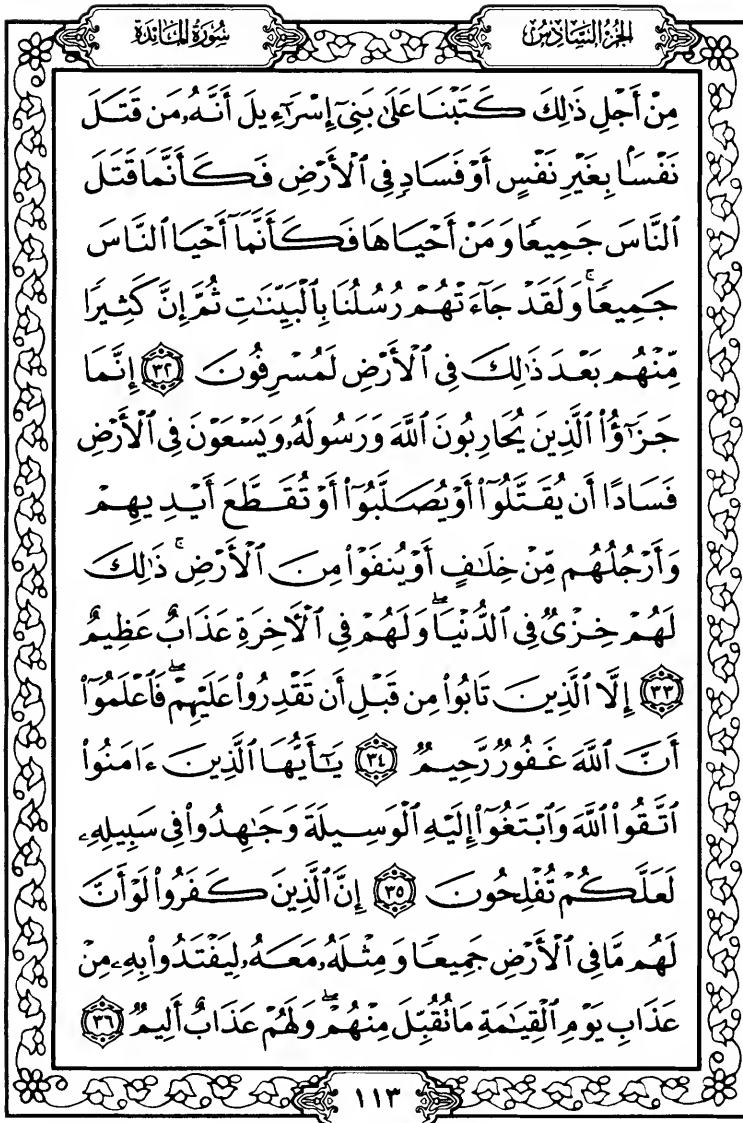 سُورَةُ المَائدَة
الجُزْءُ السَّادِسُ
مِنْ أَجْلِ ذَٰلِكَ كَتَبْنَا عَلَىٰ بَنِىٓ إِسْرَٰٓءِيلَ أَنَّهُۥ مَن قَتَلَ
نَفْسًۢا بِغَيْرِ نَفْسٍ أَوْ فَسَادٍ فِى ٱلْأَرْضِ فَكَأَنَّمَا قَتَلَ
ٱلنَّاسَ جَمِيعًا وَمَنْ أَحْيَاهَا فَكَأَنَّمَآ أَحْيَا ٱلنَّاسَ
جَمِيعًاۚ وَلَقَدْ جَآءَتْهُمْ رُسُلُنَا بِٱلْبَيِّنَٰتِ ثُمَّ إِنَّ كَثِيرًا
مِّنْهُم بَعْدَ ذَٰلِكَ فِى ٱلْأَرْضِ لَمُسْرِفُونَ ٣٢ إِنَّمَا
جَزَٰٓؤُا۟ ٱلَّذِينَ يُحَارِبُونَ ٱللَّهَ وَرَسُولَهُۥ وَيَسْعَوْنَ فِى ٱلْأَرْضِ
فَسَادًا أَن يُقَتَّلُوٓا۟ أَوْ يُصَلَّبُوٓا۟ أَوْ تُقَطَّعَ أَيْدِيهِمْ
وَأَرْجُلُهُم مِّنْ خِلَٰفٍ أَوْ يُنفَوْا۟ مِنَ ٱلْأَرْضِۚ ذَٰلِكَ
لَهُمْ خِزْىٌ فِى ٱلدُّنْيَاۖ وَلَهُمْ فِى ٱلْءَاخِرَةِ عَذَابٌ عَظِيمٌ
٣٣ إِلَّا ٱلَّذِينَ تَابُوا۟ مِن قَبْلِ أَن تَقْدِرُوا۟ عَلَيْهِمْۖ فَٱعْلَمُوٓا۟
أَنَّ ٱللَّهَ غَفُورٌ رَّحِيمٌ ٣٤ يَٰٓأَيُّهَا ٱلَّذِينَ ءَامَنُوا۟
ٱتَّقُوا۟ ٱللَّهَ وَٱبْتَغُوٓا۟ إِلَيْهِ ٱلْوَسِيلَةَ وَجَٰهِدُوا۟ فِى سَبِيلِهِۦ
لَعَلَّكُمْ تُفْلِحُونَ ٣٥ إِنَّ ٱلَّذِينَ كَفَرُوا۟ لَوْ أَنَّ
لَهُم مَّا فِى ٱلْأَرْضِ جَمِيعًا وَمِثْلَهُۥ مَعَهُۥ لِيَفْتَدُوا۟ بِهِۦ مِنْ
عَذَابِ يَوْمِ ٱلْقِيَٰمَةِ مَا تُقُبِّلَ مِنْهُمْۖ وَلَهُمْ عَذَابٌ أَلِيمٌ ٣٦
١١٣